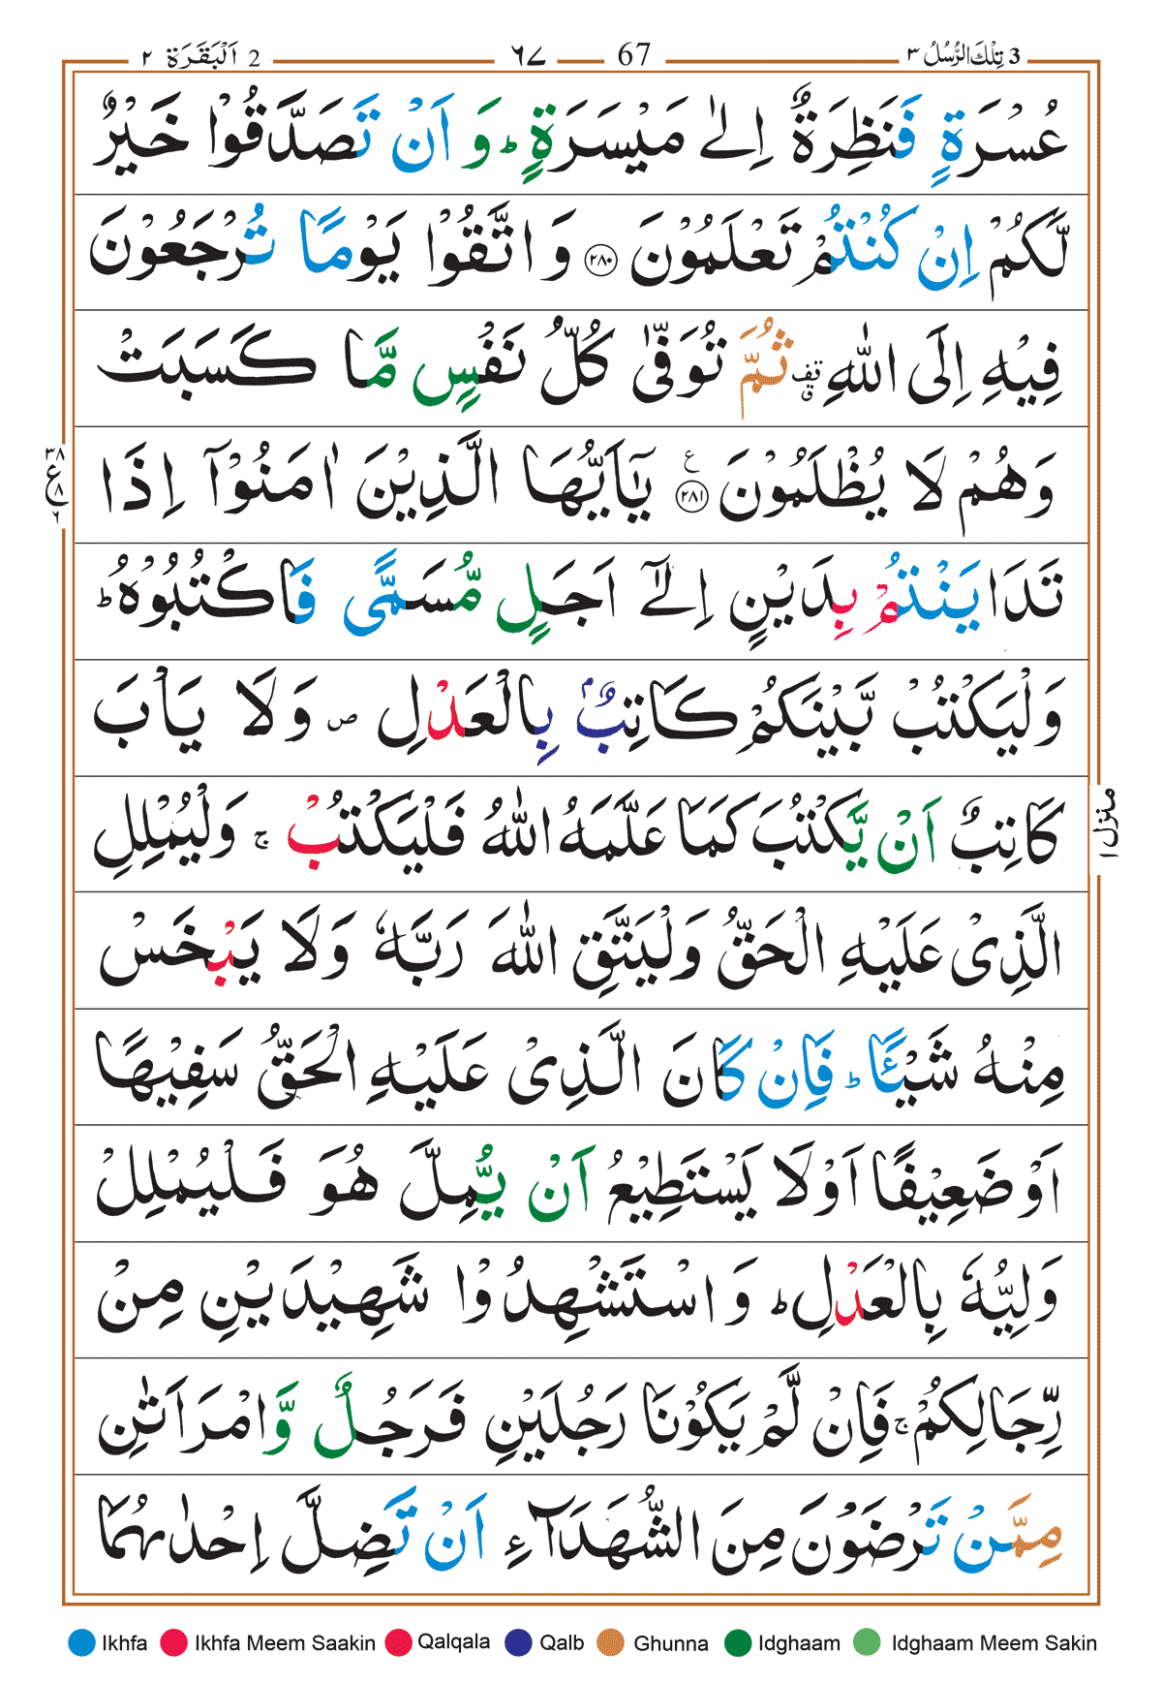 3 تِلْكَ الرُّسُلُ ٣
67
٦٧
2 اَلْبَقَرَة ٢
عُسْرَةٍ فَنَظِرَةٌ اِلٰى مَيْسَرَةٍ ؕ وَ اَنْ تَصَدَّقُوْا خَيْرٌ
لَّكُمْ اِنْ كُنْتُمْ تَعْلَمُوْنَ ﴿۲۸۰﴾ وَ اتَّقُوْا يَوْمًا تُرْجَعُوْنَ
فِيْهِ اِلَى اللّٰهِ تف ق ثُمَّ تُوَفّٰى كُلُّ نَفْسٍ مَّا كَسَبَتْ
وَهُمْ لَا يُظْلَمُوْنَ ﴿۲۸۱﴾ ع يٰۤاَيُّهَا الَّذِيْنَ اٰمَنُوْۤا اِذَا
٣٨
ع
٨
٦
تَدَايَنْتُمْ بِدَيْنٍ اِلٰۤى اَجَلٍ مُّسَمًّى فَاكْتُبُوْهُ ؕ
وَلْيَكْتُبْ بَّيْنَكُمْ كَاتِبٌۢ بِالْعَدْلِ ص وَلَا يَاْبَ
كَاتِبٌ اَنْ يَّكْتُبَ كَمَا عَلَّمَهُ اللّٰهُ فَلْيَكْتُبْ ج وَلْيُمْلِلِ
منزل ١
الَّذِيْ عَلَيْهِ الْحَقُّ وَلْيَتَّقِ اللّٰهَ رَبَّهٗ وَلَا يَبْخَسْ
مِنْهُ شَيْـًٔا ؕ فَاِنْ كَانَ الَّذِيْ عَلَيْهِ الْحَقُّ سَفِيْهًا
اَوْ ضَعِيْفًا اَوْ لَا يَسْتَطِيْعُ اَنْ يُّمِلَّ هُوَ فَلْيُمْلِلْ
وَلِيُّهٗ بِالْعَدْلِ ؕ وَ اسْتَشْهِدُوْا شَهِيْدَيْنِ مِنْ
رِّجَالِكُمْ ج فَاِنْ لَّمْ يَكُوْنَا رَجُلَيْنِ فَرَجُلٌ وَّ امْرَاَتٰنِ
مِمَّنْ تَرْضَوْنَ مِنَ الشُّهَدَآءِ اَنْ تَضِلَّ اِحْدٰىهُمَا
Ikhfa Ikhfa Meem Saakin Qalqala Qalb Ghunna Idghaam Idghaam Meem Sakin